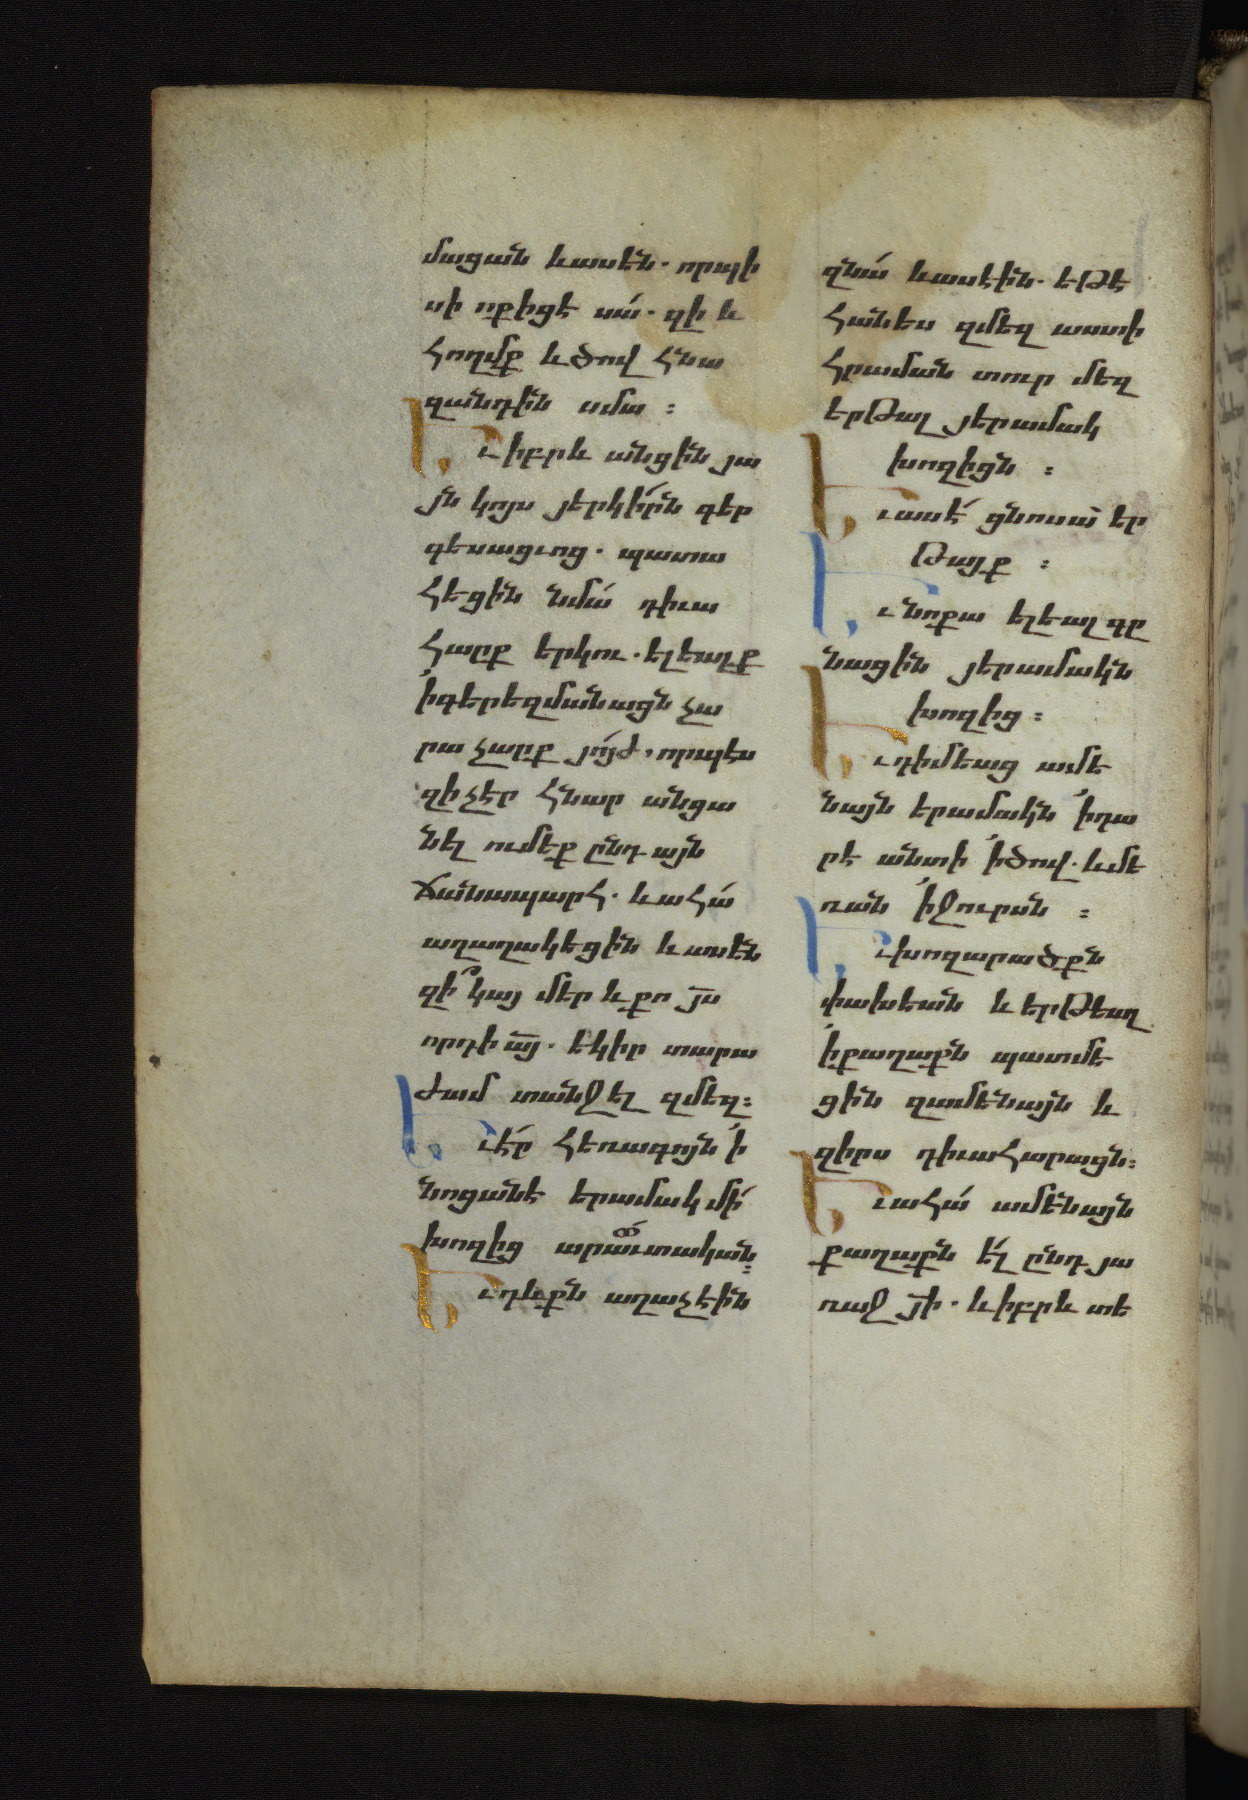 մացան և ասեն. որպի
սի ոք իցէ սա՛. զի և
հողմք և ծով հնա
զանդին սմա :
Եւ իբրև անցին յա
յն կոյս յերկի՛րն գեր
գեսացւոց. պատա
հեցին նմա՛ դիւա
հարք երկու. ելեալք
՛ի գերեզմանացն չա
րաչարք յո՛յժ, որպէս
զի չէր հնար անցա
նել ումեք ընդ այն
ճանապարհ. և ահա՛
աղաղակեցին և ասեն
զի՞ կայ մեր և քո յս
որդի այ. եկիր տարա
ժամ տանջել զմեզ:
Եւ է՛ր հեռագոյն ՛ի
նոցանէ երամակ մի՛
խոզից արաւտական:
Եւ դևքն աղաչէին
զնա՛ և ասէին. եթէ
հանես զմեզ աստի
հրաման տուր մեզ
երթալ յերամակ
խոզիցն :
Եւ ասէ՛ ցնոսա՝ եր
թայք :
Եւ նոքա ելեալ գը
նացին յերամակն
խոզից :
Եւ դիմեաց ամե
նայն երամակն ՛ի դա
րէ անտի ՛ի ծով. և մե
ռան ՛ի ջուրսն :
Եւ խոզարածքն
փախեան և երթեալ
՛ի քաղաքն պատմե
ցին զամենայն և
զիրս դիւահարացն:
Եւ ահա՛ ամենայն
քաղաքն ե՛լ ընդ յա
ռաջ յի. և իբրև տե